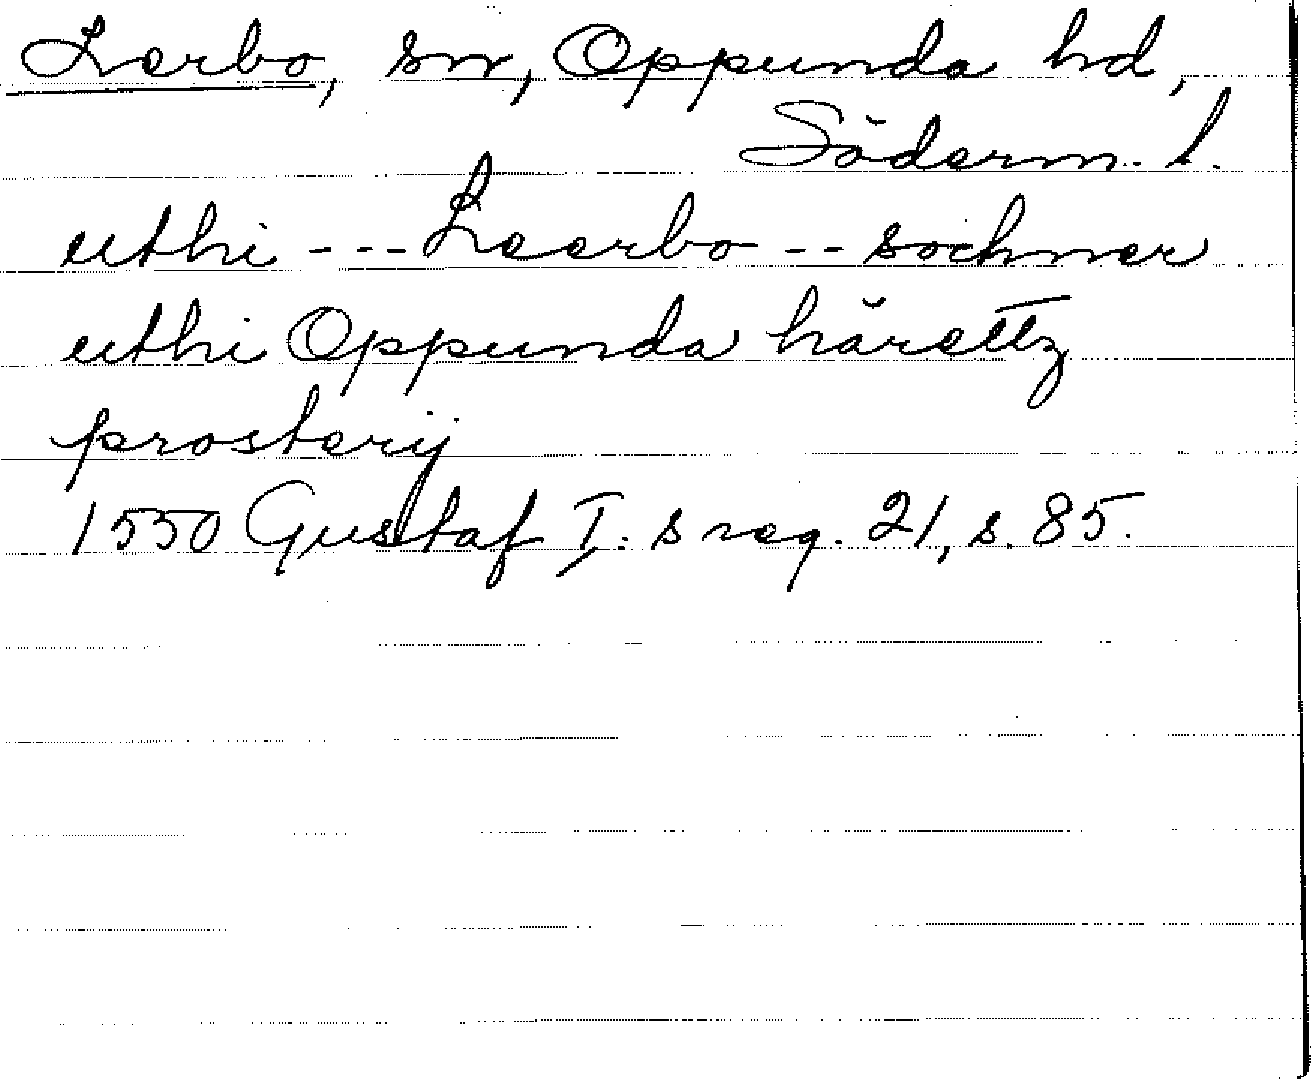 Lerbo, sn, Oppunda hd,
Söderm. l.
uthi --- Leerbo -- sochner
uthi Oppunda härettz
prosterij
1550 Gustaf I:s reg. 21, s. 85.